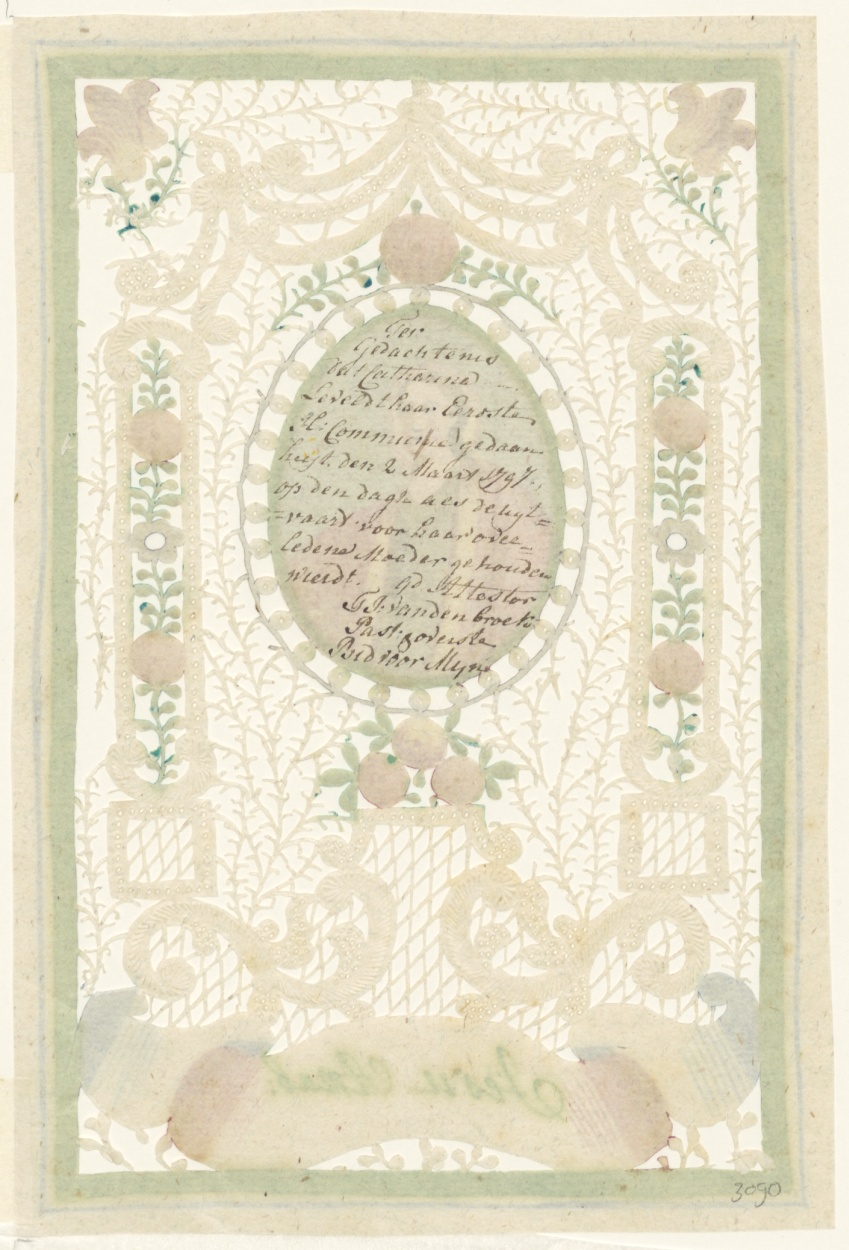 Ter
Gedachtenis
dat Catharina
Leveldt haar Eerste
H: Communie gedaan
heeft den 2 Maart 1797.,
op den dagh als de uyt=
=vaart voor haar over=
ledene Moeder gehouden
wierdt. qd Attestor
G J: van den broek
Past:
Bid voor Myn
Jesu
3090